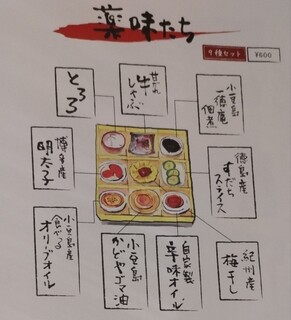 薬味たち
9種セット ¥600
とろろ
甘辛
牛
しゃぶ
小豆島
一徳庵
佃煮
博多産
明太子
徳島産
すだち
スライス
小豆島産
食べる
オリーブオイル
小豆島
かどやゴマ油
自家製
辛味オイル
紀州産
梅干し